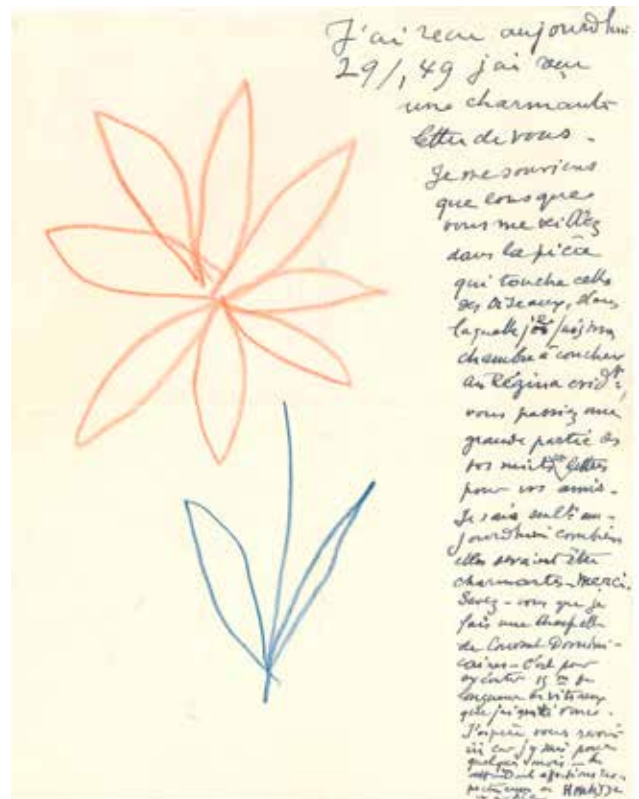 J'ai recu aujourdhui
29/1, 49 j'ai
une charmante
lettre de vous -
Je me souviens
que lorsque
vous me veillez
dans la pièce
qui touche celle
des oiseaux, dans
laquelle
chambre à coucher
au Régina
vous passiez une
grande partie de
vos nuits lettres
pour vos amis -
Je sais au-
jourdhui combien
elles devaient être
charmantes - merci.
Savez-vous que je
fais une Chapelle
de Couvent Domini-
caines - C'est pour
15 m de
longueur de vitraux
que j'ai quitté Vence -
J'espère vous revoir
ici car j'y suis pour
quelques mois -